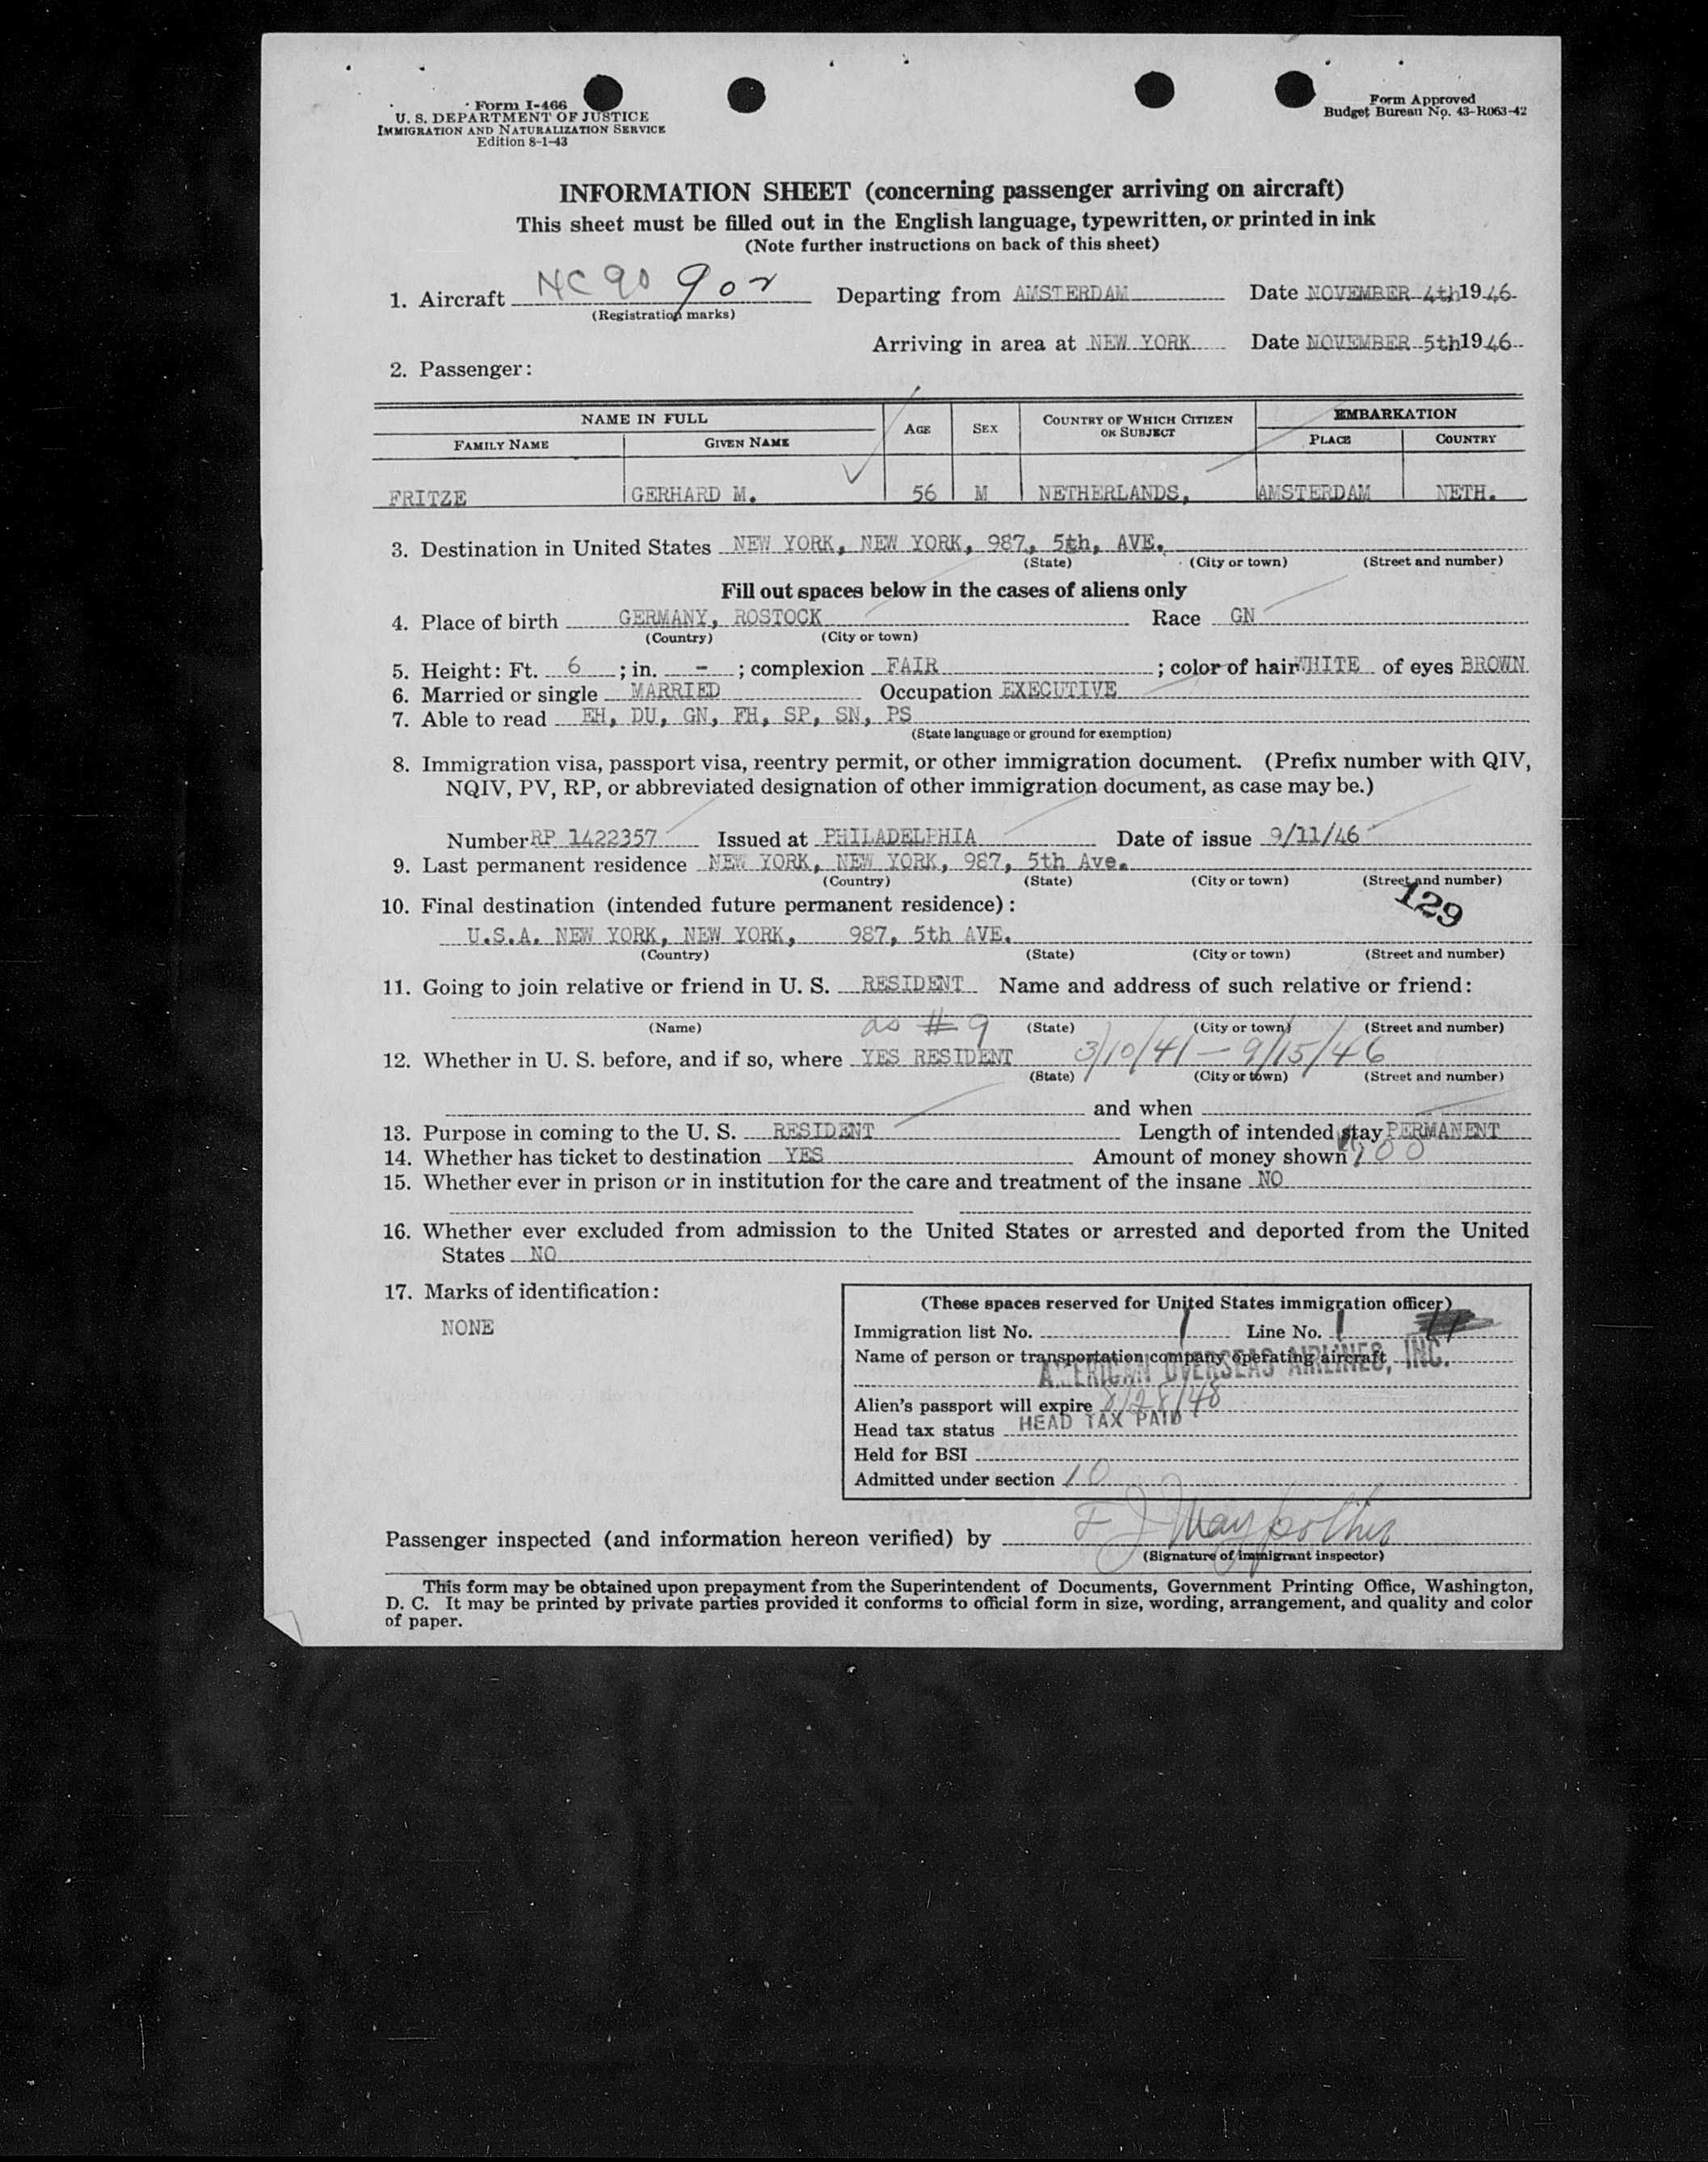 Form I-466
U. S. DEPARTMENT OF JUSTICE
IMMIGRATION AND NATURALIZATION SERVICE
Edition 8-1-43
Form Approved
Budget Bureau No. 43-R063-42
INFORMATION SHEET (concerning passenger arriving on aircraft)
This sheet must be filled out in the English language, typewritten, or printed in ink
(Note further instructions on back of this sheet)
1. Aircraft NC 90 902 Departing from AMSTERDAM Date NOVEMBER 4th 1946
(Registration marks)
Arriving in area at NEW YORK Date NOVEMBER 5th 1946
2. Passenger:
NAME IN FULL AGE SEX COUNTRY OF WHICH CITIZEN OR SUBJECT EMBARKATION
FAMILY NAME GIVEN NAME PLACE COUNTRY
FRITZE GERHARD M. 56 M NETHERLANDS, AMSTERDAM NETH.
3. Destination in United States NEW YORK, NEW YORK, 987, 5th, AVE.
(State) (City or town) (Street and number)
Fill out spaces below in the cases of aliens only
4. Place of birth GERMANY, ROSTOCK Race GN
(Country) (City or town)
5. Height: Ft. 6 ; in. - ; complexion FAIR ; color of hair WHITE of eyes BROWN
6. Married or single MARRIED Occupation EXECUTIVE
7. Able to read EH, DU, GN, FH, SP, SN, PS
(State language or ground for exemption)
8. Immigration visa, passport visa, reentry permit, or other immigration document. (Prefix number with QIV,
NQIV, PV, RP, or abbreviated designation of other immigration document, as case may be.)
Number RP 1422357 Issued at PHILADELPHIA Date of issue 9/11/46
9. Last permanent residence NEW YORK, NEW YORK, 987, 5th Ave.
(Country) (State) (City or town) (Street and number)
129
10. Final destination (intended future permanent residence):
U.S.A. NEW YORK, NEW YORK, 987, 5th AVE.
(Country) (State) (City or town) (Street and number)
11. Going to join relative or friend in U. S. RESIDENT Name and address of such relative or friend:
as # 9
(Name) (State) (City or town) (Street and number)
12. Whether in U. S. before, and if so, where YES RESIDENT 3/10/41 — 9/15/46
(State) (City or town) (Street and number)
and when
13. Purpose in coming to the U. S. RESIDENT Length of intended stay PERMANENT
14. Whether has ticket to destination YES Amount of money shown 100
15. Whether ever in prison or in institution for the care and treatment of the insane NO
16. Whether ever excluded from admission to the United States or arrested and deported from the United
States NO
17. Marks of identification:
NONE
(These spaces reserved for United States immigration officer)
Immigration list No. 1 Line No. 1
Name of person or transportation company operating aircraft
AMERICAN OVERSEAS AIRLINES, INC.
Alien's passport will expire 8/28/48
Head tax status HEAD TAX PAID
Held for BSI
Admitted under section 10
Passenger inspected (and information hereon verified) by F J
(Signature of immigrant inspector)
This form may be obtained upon prepayment from the Superintendent of Documents, Government Printing Office, Washington,
D. C. It may be printed by private parties provided it conforms to official form in size, wording, arrangement, and quality and color
of paper.